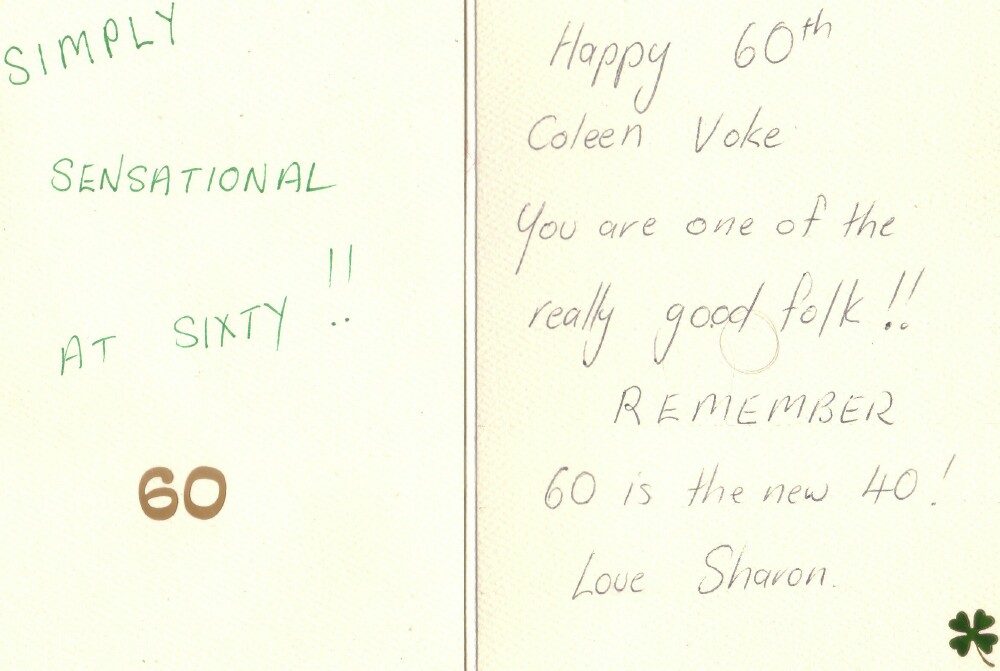 SIMPLY
SENSATIONAL
AT SIXTY !!
60
Happy 60th
Coleen Voke
You are one of the
really good folk!!
REMEMBER
60 is the new 40!
Love Sharon.